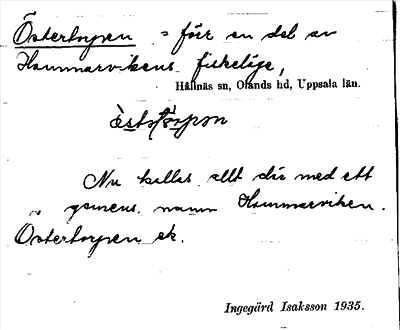 Östertorpen = förr en del av
Hammarvikens fiskeläge,
Hållnäs sn, Olands hd, Uppsala län.
Nu kallas allt där med ett
„ gemens. namn Hammarviken.
Östertorpen ek.
Ingegärd Isaksson 1935.